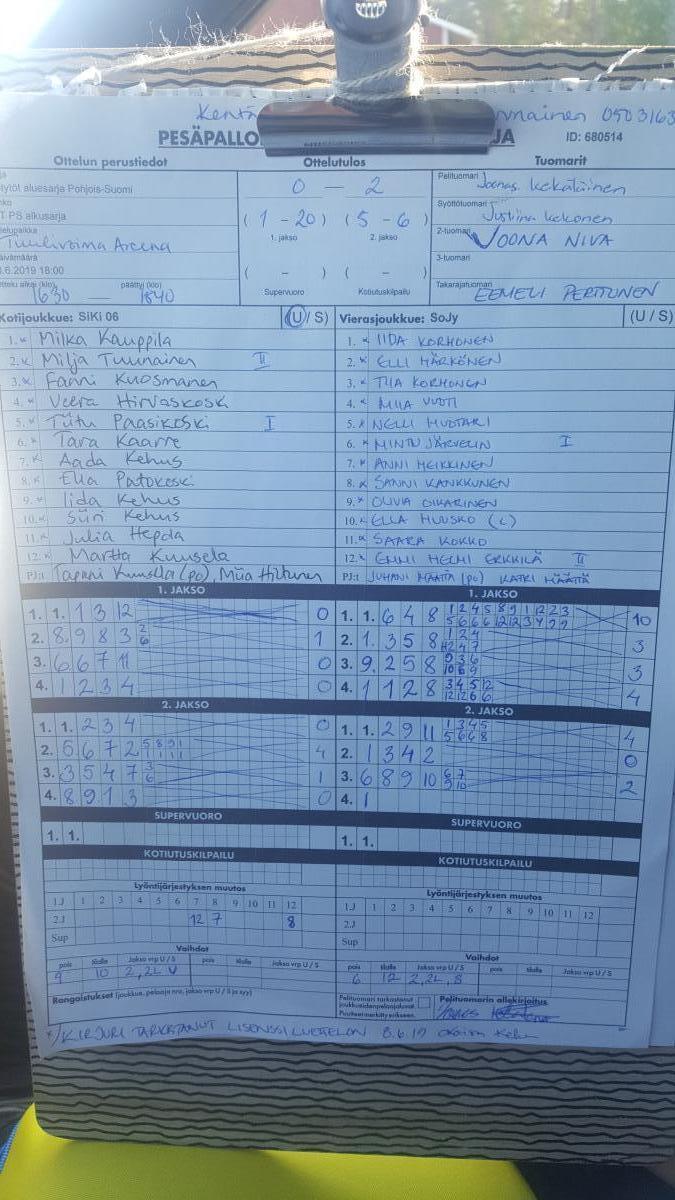 Kentä rmainen 0503163
PESÄPALLO JA ID: 680514
Ottelun perustiedot Ottelutulos Tuomarit
tytöt aluesarja Pohjois-Suomi
PS alkusarja
Tuulivoima Areena
.6.2019 18:00
päättyi (klo)
1630 — 1840
0 — 2
( 1 - 20 ) ( 5 - 6 )
1. jakso 2. jakso
( - ) ( - )
Supervuoro Kotiutuskilpailu
Pelituomari Joonas Kekäläinen
Syöttötuomari Justiina Kekonen
2-tuomari JOONA NIVA
3-tuomari
Takarajatuomari EEMELI PERTTUNEN
Kotijoukkue: SiKi 06 (U / S)
1. Milka Kauppila
2. Milja Tuunainen II
3. Fanni Kuosmanen
4. Veera Hirvaskoski
5. Tiitu Paasikoski I
6. Tara Kaarre
7. Aada Kehus
8. Ella Patokoski
9. Iida Kehus
10. Siiri Kehus
11. Julia Hepola
12. Martta Kuusela
PJ: Tapani Kuusela (po), Miia Hiltunen
Vierasjoukkue: SoJy (U / S)
1. IIDA KORHONEN
2. ELLI HÄRKÖNEN
3. TIIA KORHONEN
4. MIIA VUOTI
5. NELLI HUOTARI
6. MINTU JÄRVELIN I
7. ANNI HEIKKINEN
8. SANNI KANKKUNEN
9. OLIVIA OIKARINEN
10. ELLA HUUSKO (L)
11. SAARA KOKKO
12. EMMI HELMI ERKKILÄ II
PJ: JUHANI MÄÄTTÄ (po) KATRI MÄÄTTÄ
1. JAKSO
1. 1. 1 3 12 0
2. 8 9 8 3 2 6 1
3. 6 6 7 11 0
4. 1 2 3 4 0
2. JAKSO
1. 1. 2 3 4 0
2. 5 6 7 2 5 8 9 1 1 1 1 4
3. 3 5 4 7 3 6 1
4. 8 9 1 3 0
SUPERVUORO
1. 1.
KOTIUTUSKILPAILU
1. JAKSO
1. 1. 6 4 8 10
2. 1. 3 5 8 3
3. 9. 2 5 8 3
4. 1 1 2 8 4
2. JAKSO
1. 1. 2 9 11 1 3 4 5 5 6 6 8 4
2. 1 3 4 2 0
3. 6 8 9 10 6 7 9 10 2
4. 1
SUPERVUORO
1. 1.
KOTIUTUSKILPAILU
Lyöntijärjestyksen muutos
1.J 1 2 3 4 5 6 7 8 9 10 11 12
2.J 12 7 8
Sup
Vaihdot
pois tilalle Jakso vrp U / S pois tilalle Jakso vrp U / S
9 10 2,2L U
Rangaistukset (joukkue, pelaaja nro, jakso vrp U / S ja syy)
Lyöntijärjestyksen muutos
1.J 1 2 3 4 5 6 7 8 9 10 11 12
2.J
Sup
Vaihdot
pois tilalle Jakso vrp U / S pois tilalle Jakso vrp U / S
6 12 2,2L, S
Pelituomari tarkastanut
Pelituomarin allekirjoitus
*/ KIRJURI TARKISTANUT LISENSSILUETTELON 8.6.19